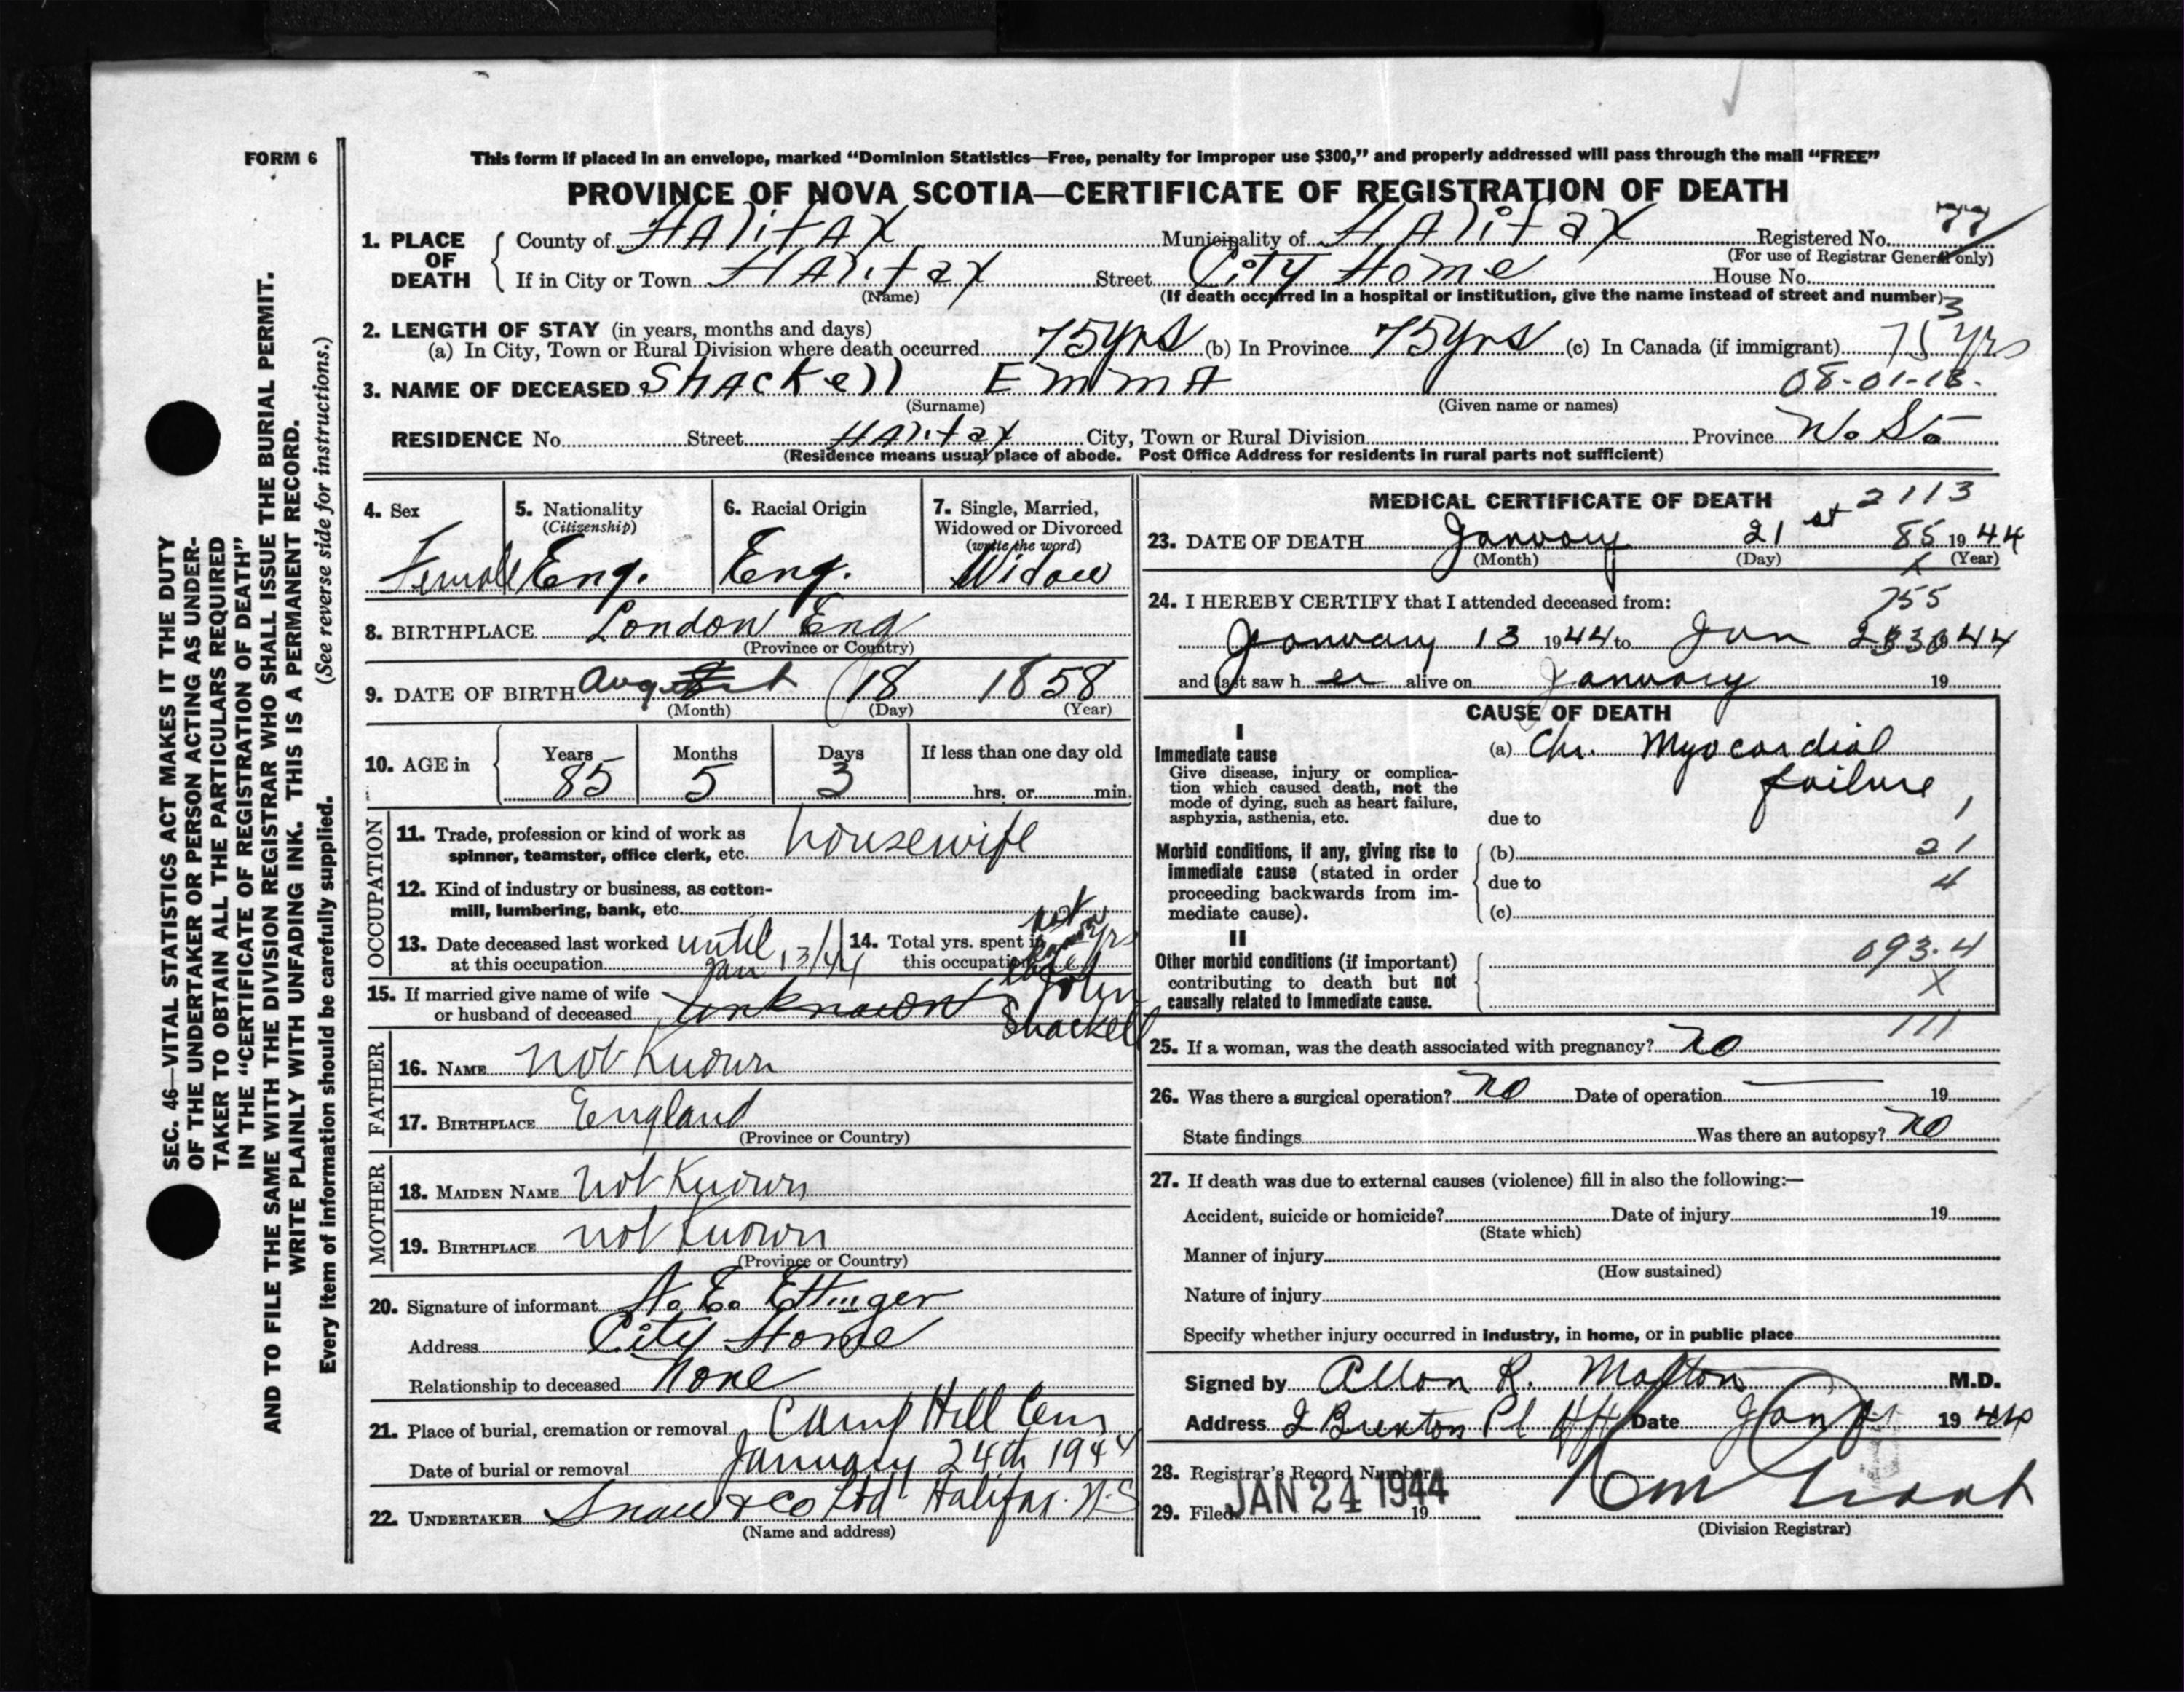 FORM 6
This form if placed in an envelope, marked “Dominion Statistics—Free, penalty for improper use $300,” and properly addressed will pass through the mail “FREE”
PROVINCE OF NOVA SCOTIA—CERTIFICATE OF REGISTRATION OF DEATH
1. PLACE OF DEATH County of Halifax Municipality of Halifax Registered No. 77
(For use of Registrar General only)
If in City or Town Halifax Street City Home House No.
(Name) (If death occurred in a hospital or institution, give the name instead of street and number)
3
2. LENGTH OF STAY (in years, months and days)
(a) In City, Town or Rural Division where death occurred 75 yrs (b) In Province 75 yrs (c) In Canada (if immigrant) 75 yrs
3. NAME OF DECEASED Shackell Emma 08-01-18.
(Surname) (Given name or names)
RESIDENCE No. Street Halifax City, Town or Rural Division Province N. S.
(Residence means usual place of abode. Post Office Address for residents in rural parts not sufficient)
SEC. 46—VITAL STATISTICS ACT MAKES IT THE DUTY
OF THE UNDERTAKER OR PERSON ACTING AS UNDER-
TAKER TO OBTAIN ALL THE PARTICULARS REQUIRED
IN THE “CERTIFICATE OF REGISTRATION OF DEATH”
AND TO FILE THE SAME WITH THE DIVISION REGISTRAR WHO SHALL ISSUE THE BURIAL PERMIT.
WRITE PLAINLY WITH UNFADING INK. THIS IS A PERMANENT RECORD.
(See reverse side for instructions.)
Every item of information should be carefully supplied.
4. Sex
Female
5. Nationality
(Citizenship)
Eng.
6. Racial Origin
Eng.
7. Single, Married,
Widowed or Divorced
(write the word)
Widow
8. BIRTHPLACE London Eng
(Province or Country)
9. DATE OF BIRTH August 18 1858
(Month) (Day) (Year)
10. AGE in
Years Months Days If less than one day old
85 5 3 hrs. or min.
OCCUPATION
11. Trade, profession or kind of work as
spinner, teamster, office clerk, etc. housewife
12. Kind of industry or business, as cotton-
mill, lumbering, bank, etc.
13. Date deceased last worked until
at this occupation Jan 13/44
14. Total yrs. spent in
this occupation
15. If married give name of wife
or husband of deceased unknown John
Shackell
FATHER
16. NAME not Known
17. BIRTHPLACE England
(Province or Country)
MOTHER
18. MAIDEN NAME not Known
19. BIRTHPLACE not Known
(Province or Country)
20. Signature of informant A. E. Ettinger
Address City Home
Relationship to deceased None
21. Place of burial, cremation or removal Camp Hill Cem
Date of burial or removal January 24th 1944
22. UNDERTAKER Snow & Co Ltd Halifax. N.S
(Name and address)
MEDICAL CERTIFICATE OF DEATH 2113
23. DATE OF DEATH January 21 st 85 1944
(Month) (Day) (Year)
24. I HEREBY CERTIFY that I attended deceased from: 755
January 13 1944 to Jan 1944
and last saw her alive on January 19
CAUSE OF DEATH
I
Immediate cause
Give disease, injury or complica-
tion which caused death, not the
mode of dying, such as heart failure,
asphyxia, asthenia, etc.
(a) Chr. Myocardial
failure
due to 1
Morbid conditions, if any, giving rise to
immediate cause (stated in order
proceeding backwards from im-
mediate cause).
(b) 21
due to 4
(c)
II
Other morbid conditions (if important)
contributing to death but not
causally related to immediate cause.
093.4
X
111
25. If a woman, was the death associated with pregnancy? no
26. Was there a surgical operation? no Date of operation — 19
State findings Was there an autopsy? no
27. If death was due to external causes (violence) fill in also the following:—
Accident, suicide or homicide? Date of injury 19
(State which)
Manner of injury
(How sustained)
Nature of injury
Specify whether injury occurred in industry, in home, or in public place
Signed by Allon R. Morton M.D.
Address Pl Hfx Date Jan 21 1944
28. Registrar's Record Number
29. Filed JAN 24 1944 19
(Division Registrar)